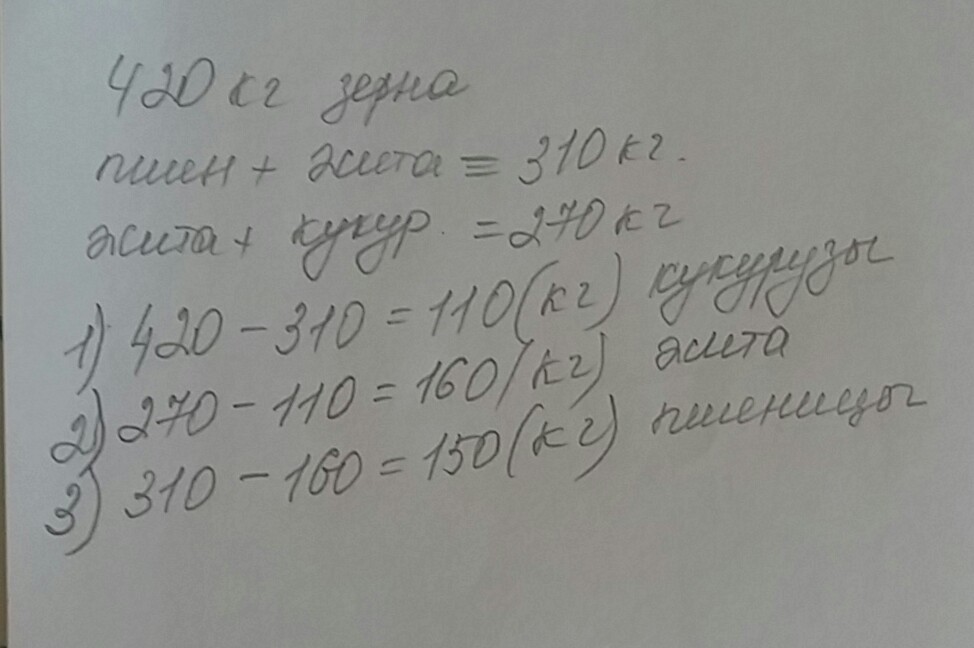 420 кг зерна
пшен + жита = 310 кг.
жита + кукур. = 270 кг
1) 420 - 310 = 110 (кг) кукурузы
2) 270 - 110 = 160 (кг) жита
3) 310 - 160 = 150 (кг) пшеницы